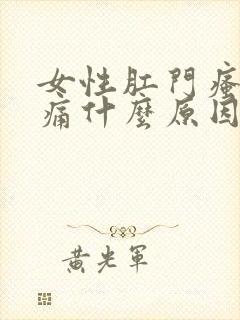 女性肛門瘙
痛什麼原因
黃光軍